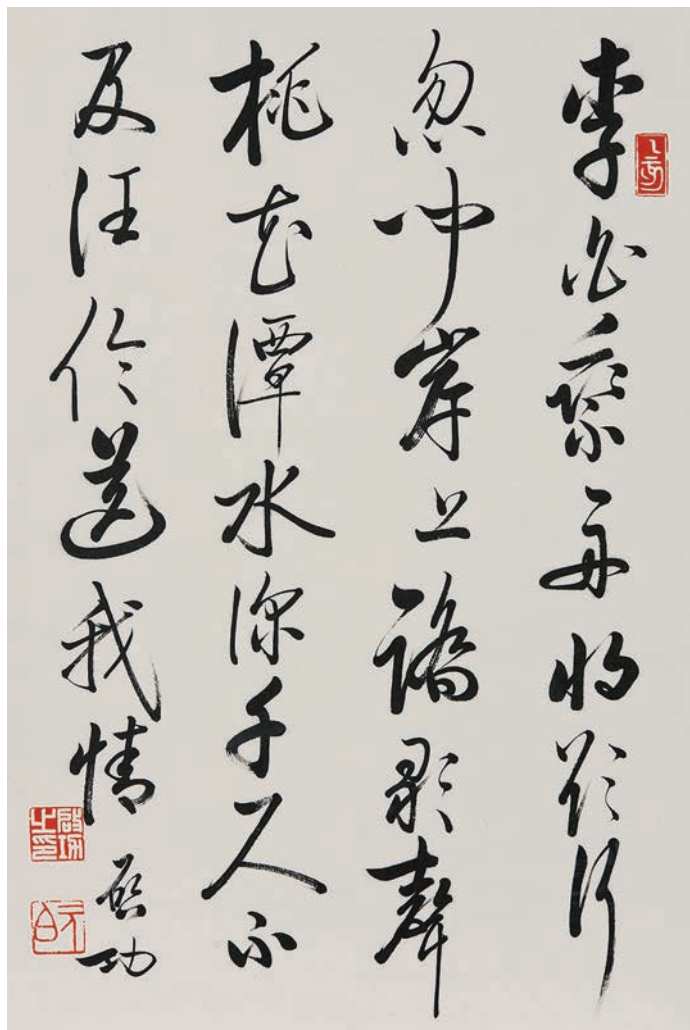 李白乘舟將欲行
忽聞岸上踏歌聲
桃花潭水深千尺不
及汪倫送我情 啟功
啟功之印
元白